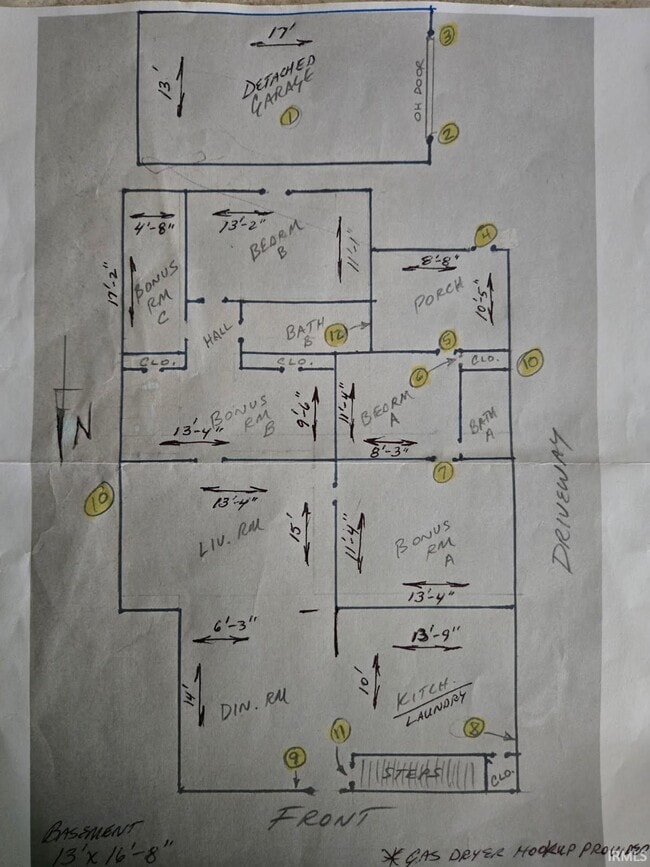 17'
3
13'
DETACHED
GARAGE
OH DOOR
1
2
4'-8"
13'-2"
BEDRM
B
11'-1"
4
8'-8"
17'-2"
BONUS
RM
C
PORCH
10'-5"
HALL
BATH
B
12
5
CLO.
CLO.
6
CLO.
10
N
BONUS
RM
B
9'-6"
11'-4"
BEDRM
A
BATH
A
13'-4"
8'-3"
7
DRIVEWAY
10
13'-4"
LIV. RM
15'
11'-4"
BONUS
RM
A
13'-4"
6'-3"
13'-9"
14'
DIN. RM
10'
KITCH.
LAUNDRY
11
8
9
STEPS
CLO.
FRONT
BASEMENT
13' X 16'-8"
* GAS DRYER HOOKUP PROVIDED
IRMLS